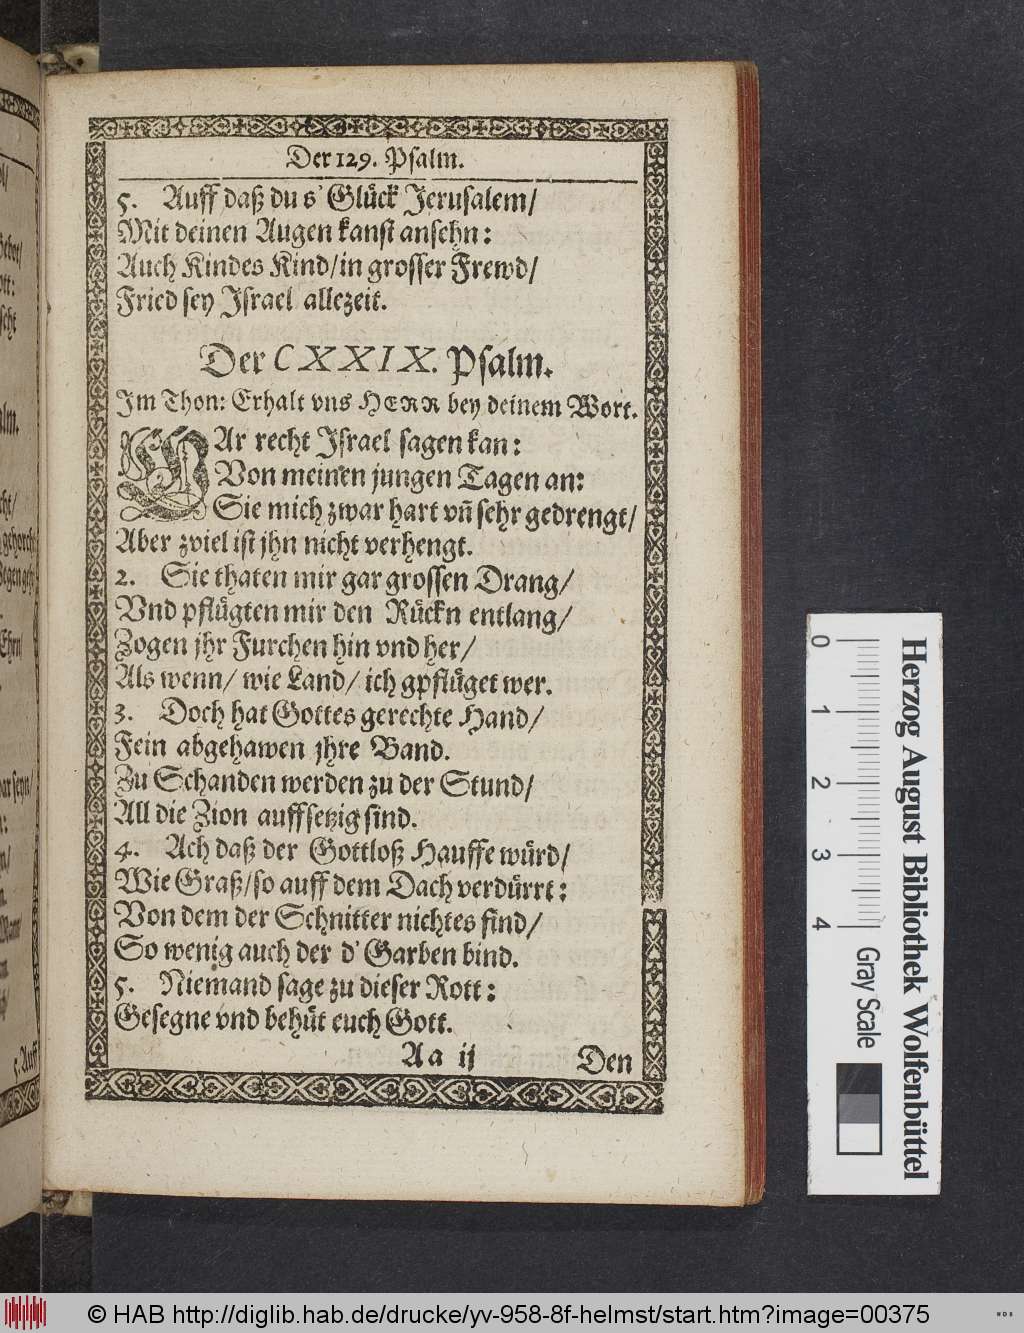 Der 129. Psalm.
5. Auff daß du s' Glück Jerusalem/
Mit deinen Augen kanst ansehn:
Auch Kindes Kind/in grosser Frewd/
Fried sey Israel allezeit.
Der CXXIX. Psalm.
Im Thon: Erhalt vns HERR bey deinem Wort.
WAr recht Israel sagen kan:
Von meinen jungen Tagen an:
Sie mich zwar hart vñ sehr gedrengt/
Aber zviel ist jhn nicht verhengt.
2. Sie thaten mir gar grossen Drang/
Vnd pflügten mir den Rückn entlang/
Zogen jhr Furchen hin vnd her/
Als wenn/ wie Land/ ich gpflüget wer.
3. Doch hat Gottes gerechte Hand/
Fein abgehawen jhre Band.
Zu Schanden werden zu der Stund/
All die Zion auffsetzig sind.
4. Ach daß der Gottloß Hauffe würd/
Wie Graß/so auff dem Dach verdürrt:
Von dem der Schnitter nichtes find/
So wenig auch der d' Garben bind.
5. Niemand sage zu dieser Rott:
Gesegne vnd behüt euch Gott.
Aa ij Den
5. Auff
Herzog August Bibliothek Wolfenbüttel
0 1 2 3 4 Gray Scale
© HAB http://diglib.hab.de/drucke/yv-958-8f-helmst/start.htm?image=00375